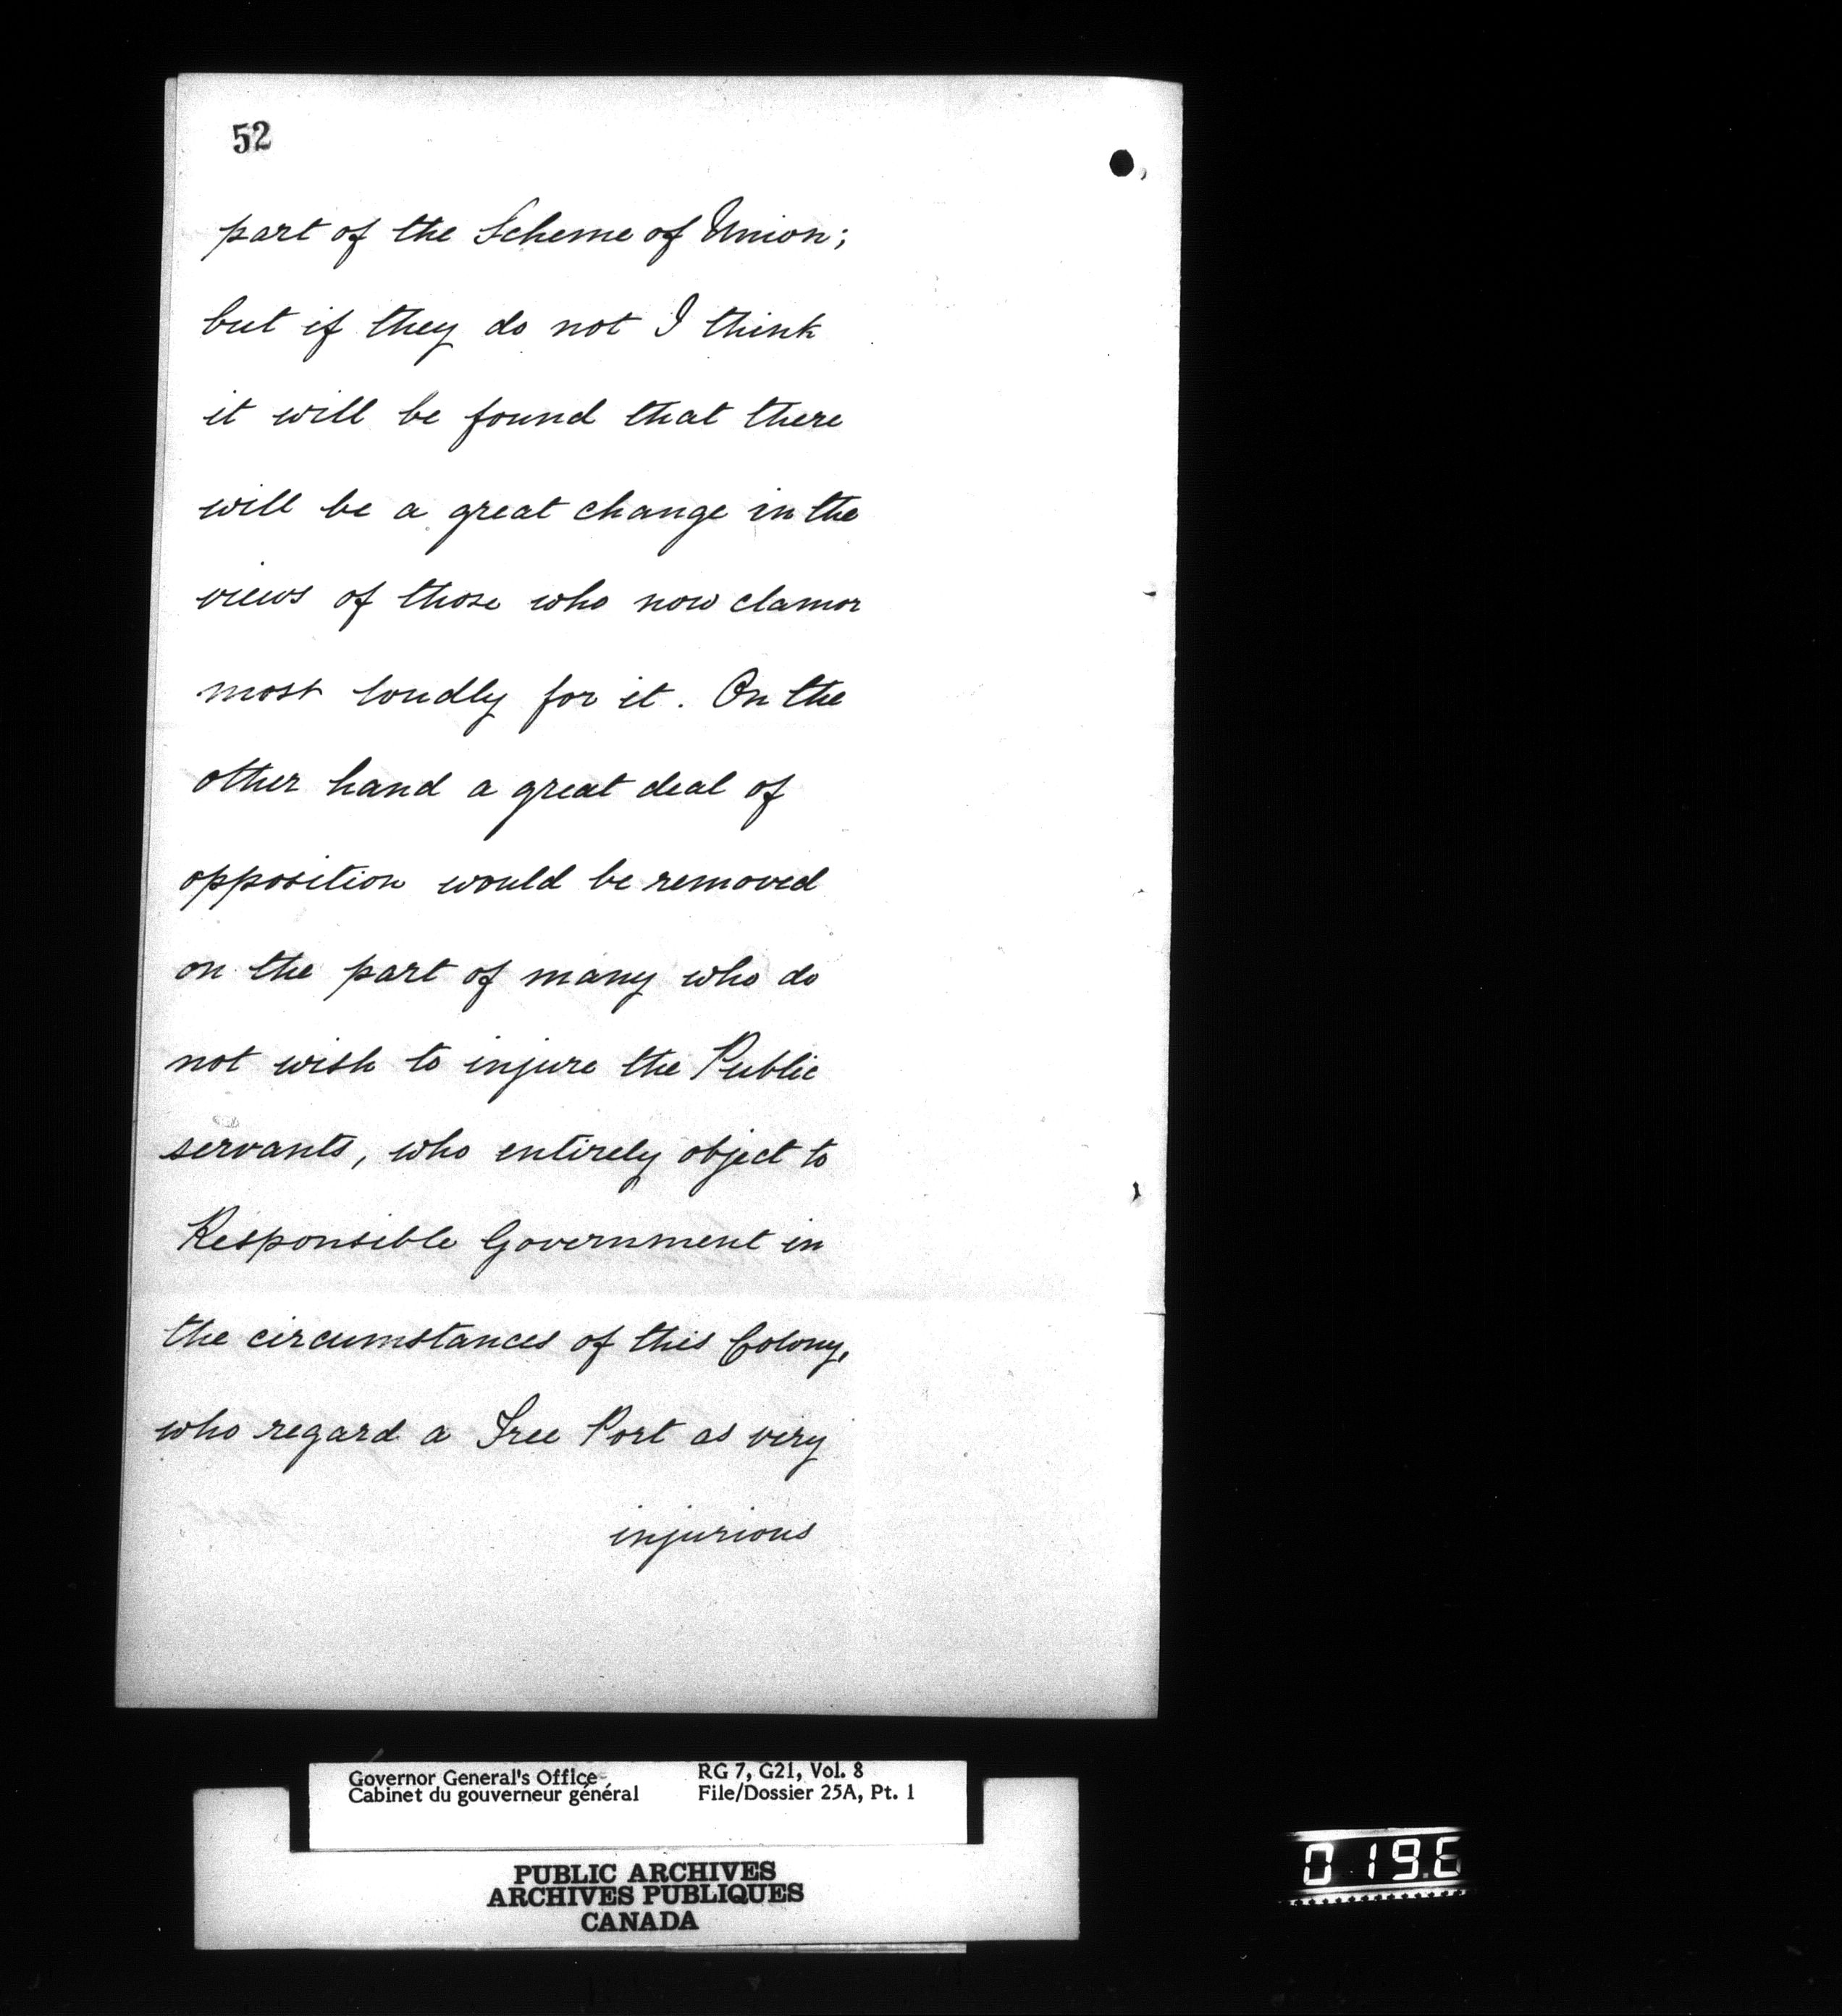 52
part of the Scheme of Union;
but if they do not I think
it will be found that there
will be a great change in the
views of those who now clamor
most loudly for it. On the
other hand a great deal of
opposition would be removed
on the part of many who do
not wish to injure the Public
servants, who entirely object to
Responsible Government in
the circumstances of this Colony,
who regard a Free Port as very
injurious
Governor General's Office
Cabinet du gouverneur général
RG 7, G21, Vol. 8
File/Dossier 25A, Pt. 1
PUBLIC ARCHIVES
ARCHIVES PUBLIQUES
CANADA